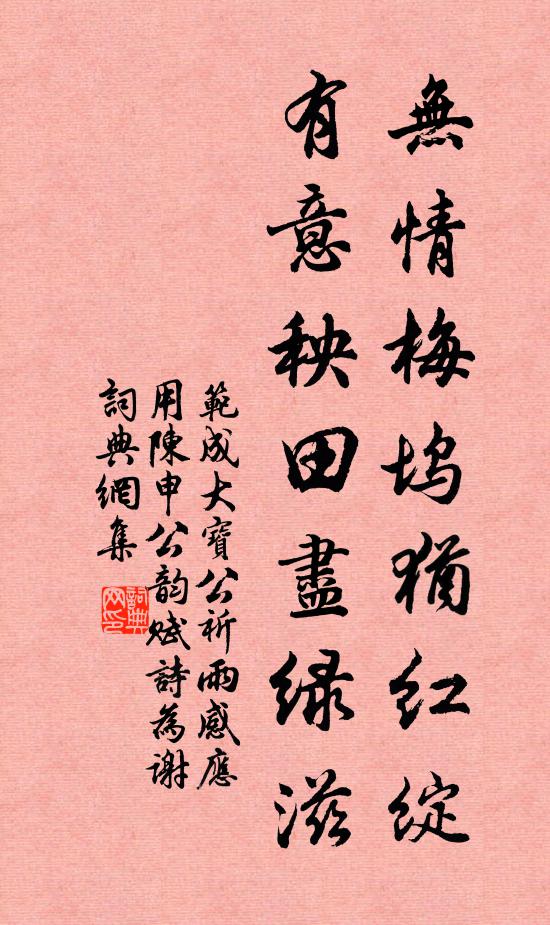 無情梅塢猶紅綻
有意秧田盡綠滋
範成大寶公祈雨感應
用陳申公韵賦詩為謝
詞典網集
詞典网印